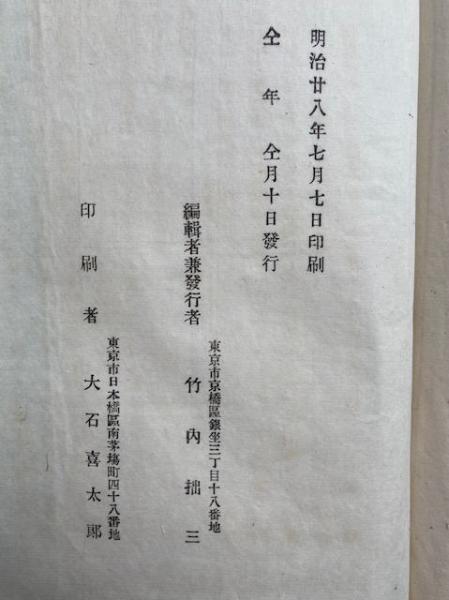 明治廿八年七月七日印刷
仝年仝月十日發行
東京市京橋區銀座三丁目十八番地
編輯者兼發行者 竹內拙三
東京市日本橋區南茅場町四十八番地
印刷者 大石喜太郎